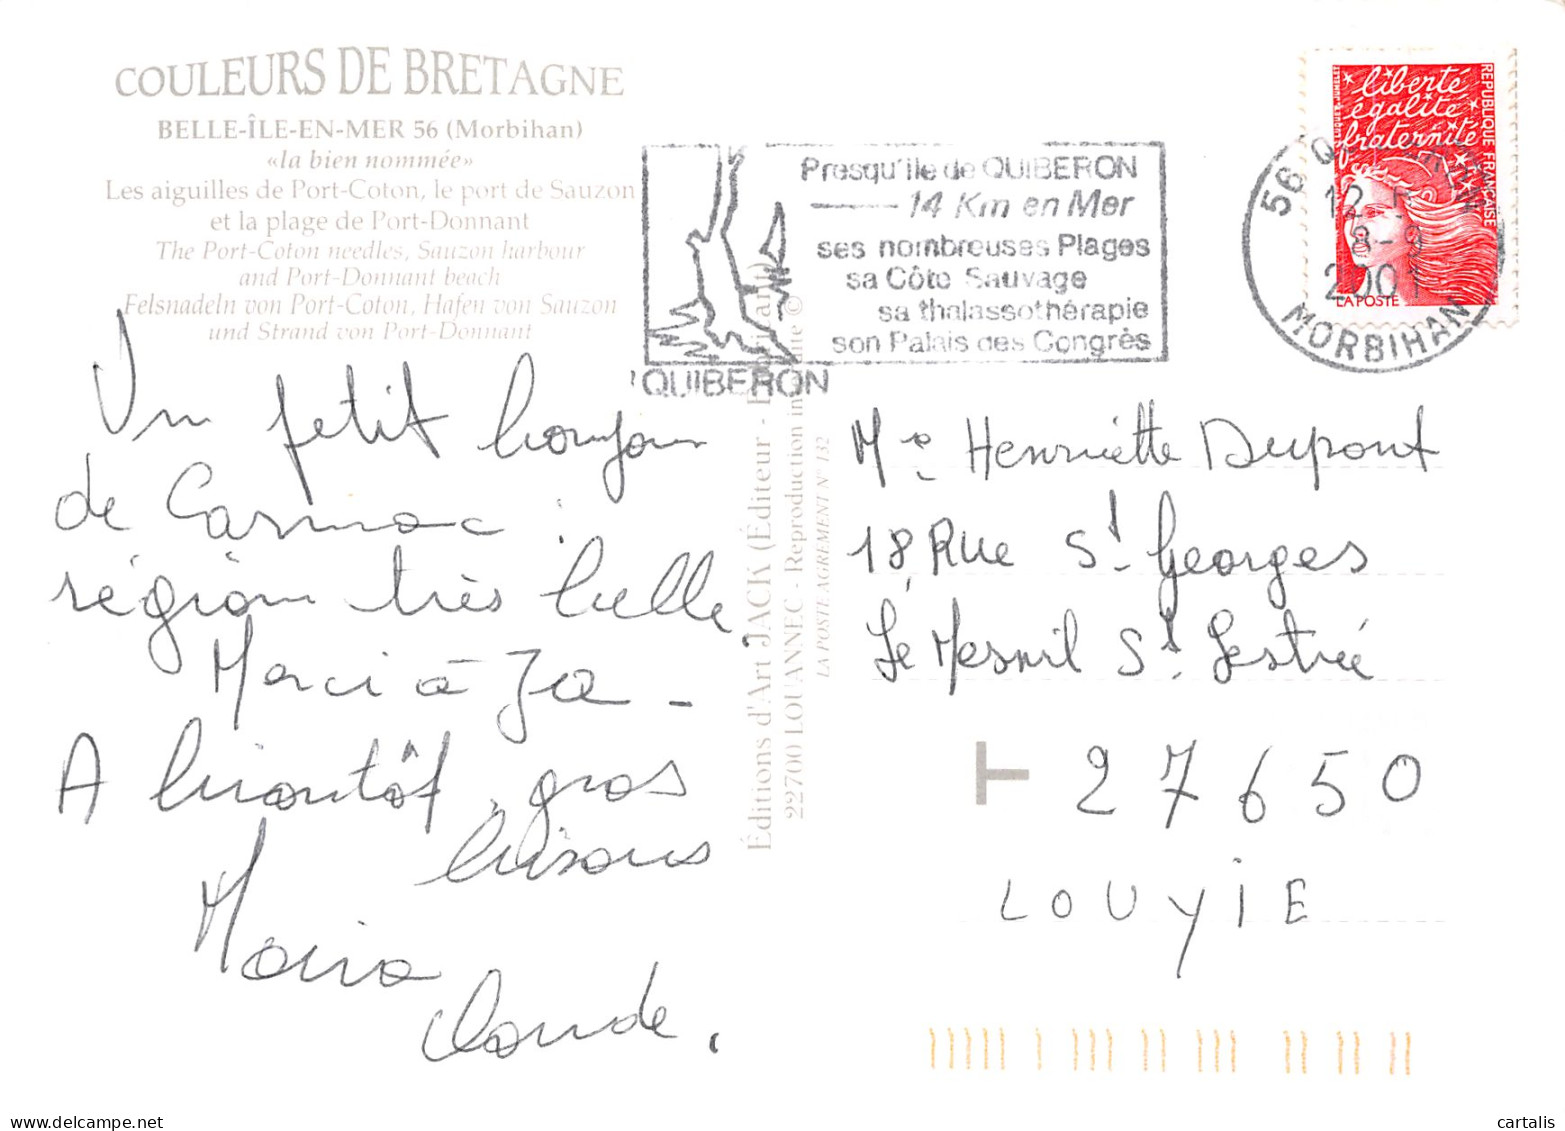 COULEURS DE BRETAGNE
BELLE-ÎLE-EN-MER 56 (Morbihan)
«la bien nommée»
Les aiguilles de Port-Coton, le port de Sauzon
et la plage de Port-Donnant
The Port-Coton needles, Sauzon harbour
and Port-Donnant beach
Felsnadeln von Port-Coton, Hafen von Sauzon
und Strand von Port-Donnant
Un petit bonjour
de Carnac :
région très belle.
Merci à
A bientôt, gros
bisous
Marie
Claude.
Presqu'île de QUIBERON
14 Km en Mer
ses nombreuses Plages
sa Côte Sauvage
sa thalassothérapie
son Palais des Congrès
QUIBERON
Éditions d'Art JACK (Éditeur -
22700 LOUANNEC - Reproduction
LA POSTE AGREMENT N° 132
liberté
égalité
fraternité
RÉPUBLIQUE FRANÇAISE
LA POSTE
56
12
8-9
2001
MORBIHAN
Me Henriette Dupont
18, Rue St Georges
Le Mesnil St. Lestrée
T
27650
LOUYIE
cartalis